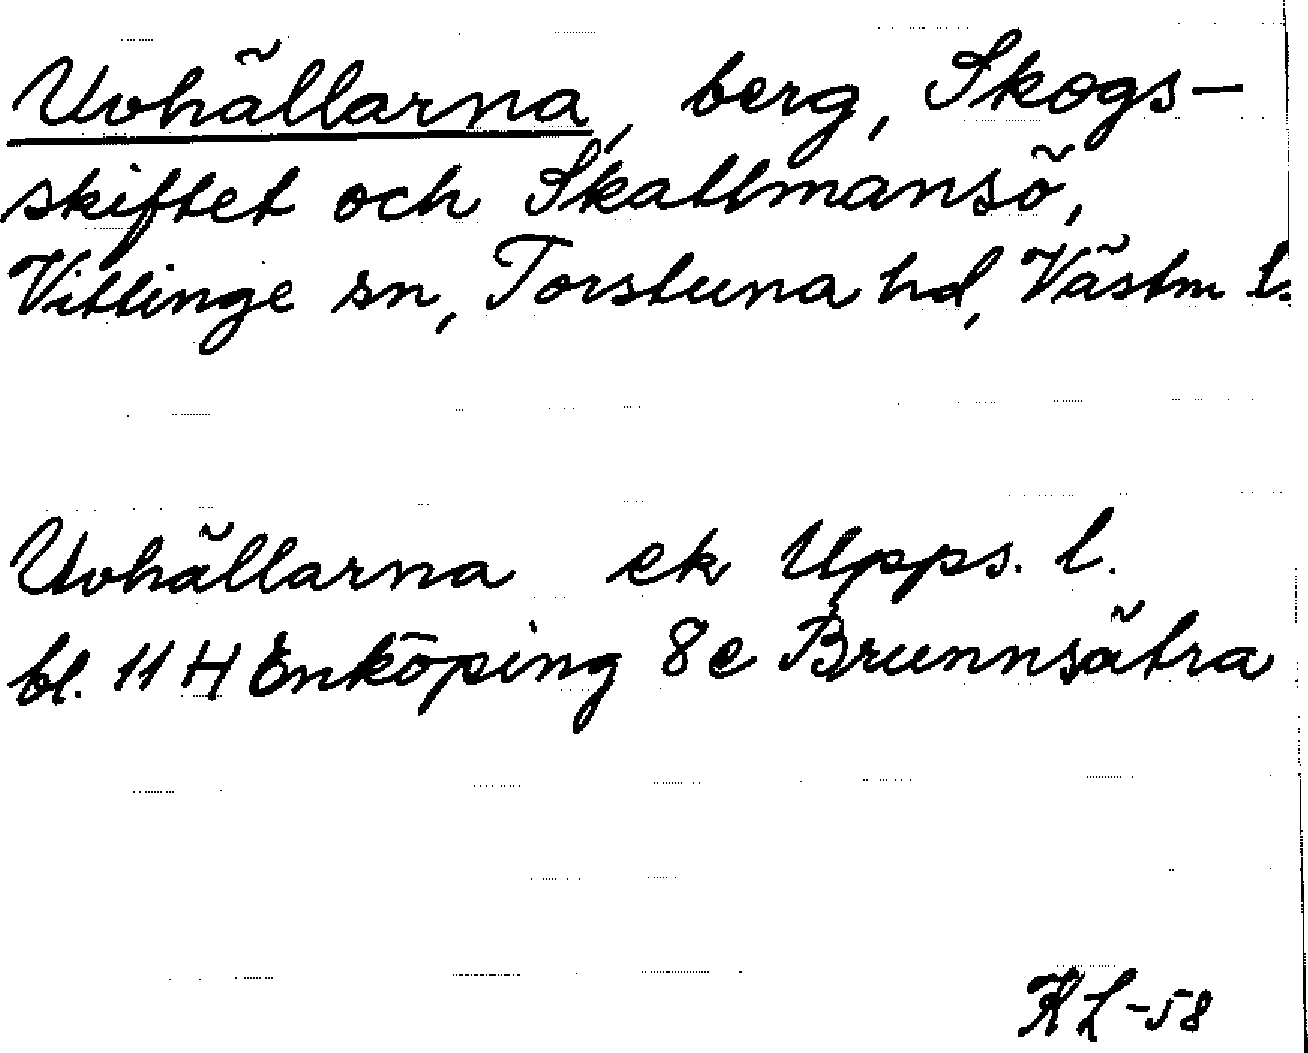 Uvhällarna, berg, Skogs-
skiftet och Skattmansö,
Vittinge sn, Torstuna hd, Västm l.
Uvhällarna ek Upps. l.
bl. 11 H Enköping 8 e Brunnsätra
KL-58